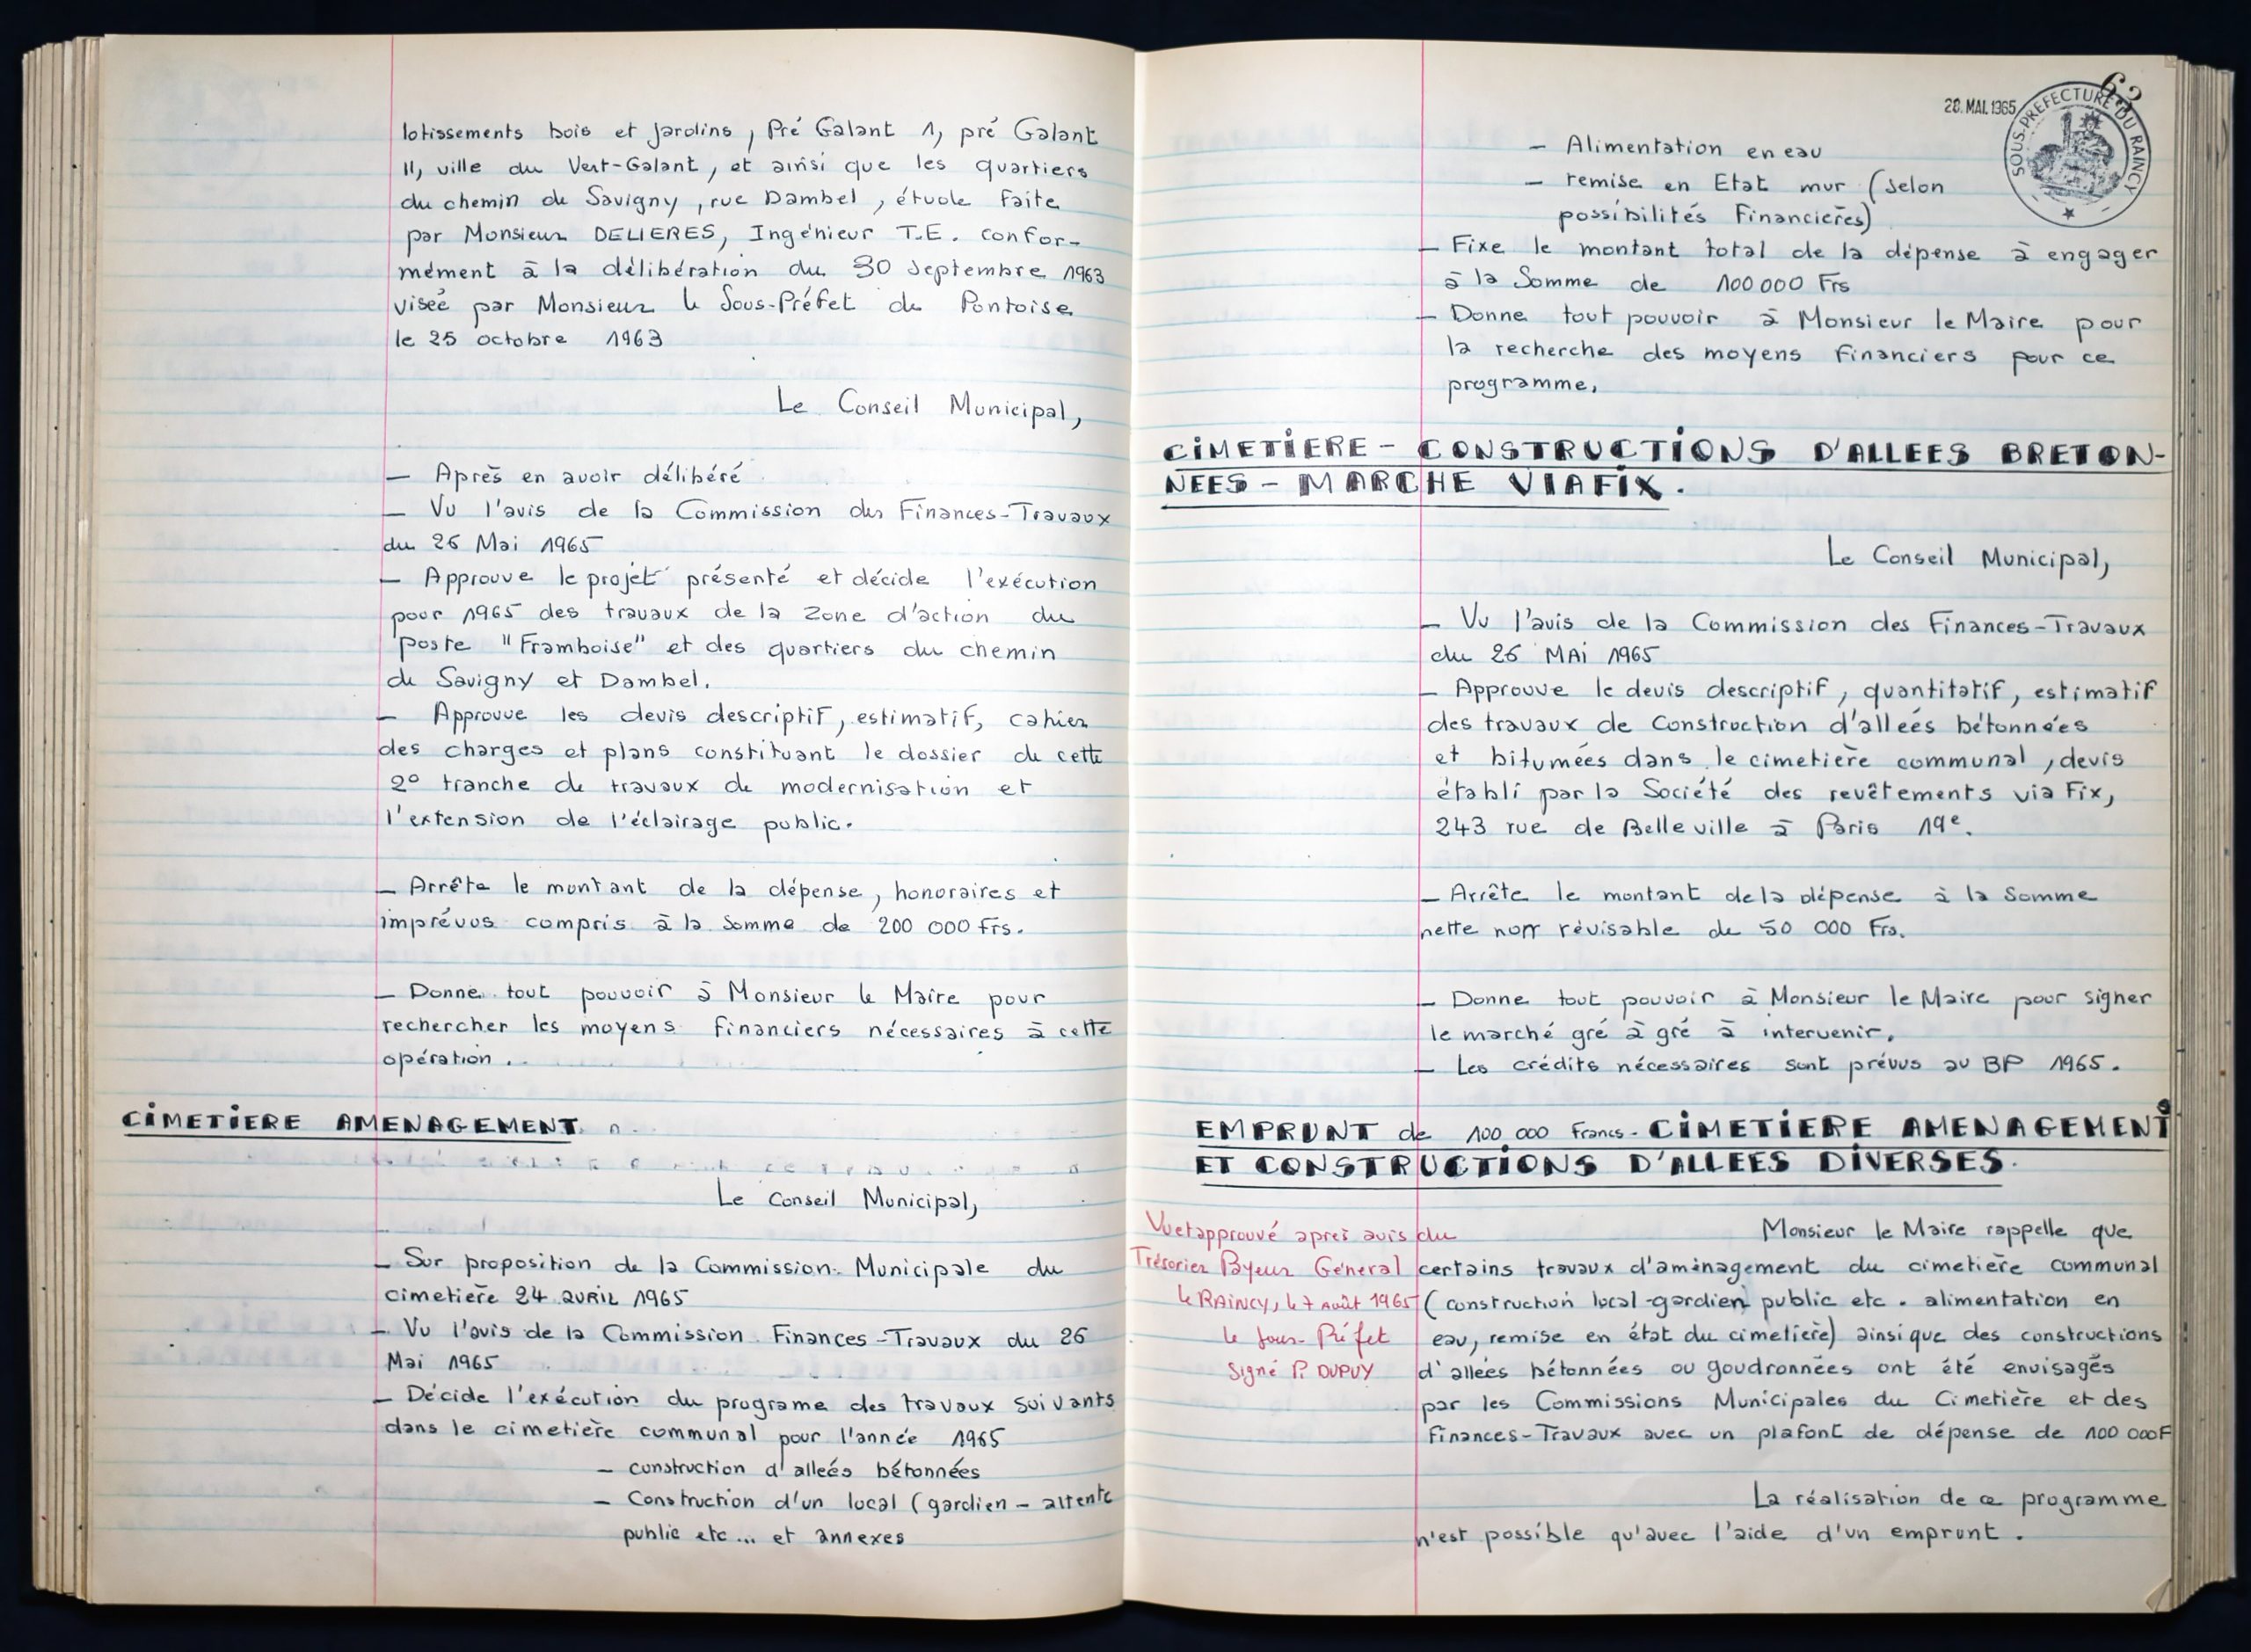 lotissements bois et jardins, Pré Galant 1, pré Galant
11, ville du Vert-Galant, et ainsi que les quartiers
du chemin de Savigny, rue Dambel, étude faite
par Monsieur DELIERES, Ingénieur T.E. confor-
mément à la délibération du 30 Septembre 1963
visée par Monsieur le Sous-Préfet de Pontoise
le 25 octobre 1963
Le Conseil Municipal,
— Après en avoir délibéré
— Vu l'avis de la Commission des Finances-Travaux
du 26 Mai 1965
— Approuve le projet présenté et décide l'exécution
pour 1965 des travaux de la zone d'action du
poste "Framboise" et des quartiers du chemin
de Savigny et Dambel.
— Approuve les devis descriptif, estimatif, cahier
des charges et plans constituant le dossier de cette
2° tranche de travaux de modernisation et
l'extension de l'éclairage public.
— Arrête le montant de la dépense, honoraires et
imprévus compris à la somme de 200 000 Frs.
— Donne tout pouvoir à Monsieur le Maire pour
rechercher les moyens financiers nécessaires à cette
opération.
CIMETIERE AMENAGEMENT
Le Conseil Municipal,
— Sur proposition de la Commission Municipale du
cimetière 24 AVRIL 1965
— Vu l'avis de la Commission Finances-Travaux du 26
Mai 1965
— Décide l'exécution du programe des travaux suivants
dans le cimetière communal pour l'année 1965
— construction d'alleés bétonnées
— Construction d'un local (gardien - attente
public etc... et annexes
63
28. MAI. 1965
SOUS-PREFECTURE DU RAINCY
— Alimentation en eau
— remise en Etat mur (selon
possibilités Financieres)
— Fixe le montant total de la dépense à engager
à la Somme de 100 000 Frs
— Donne tout pouvoir à Monsieur le Maire pour
la recherche des moyens financiers pour ce
programme.
CIMETIERE - CONSTRUCTIONS D'ALLEES BRETON-
NEES - MARCHE VIAFIX.
Le Conseil Municipal,
— Vu l'avis de la Commission des Finances-Travaux
du 26 MAI 1965
— Approuve le devis descriptif, quantitatif, estimatif
des travaux de Construction d'alleés bétonnées
et bitumées dans le cimetière communal, devis
établi par la Société des revêtements via Fix,
243 rue de Belleville à Paris 19e.
— Arrête le montant de la dépense à la Somme
nette non révisable de 50 000 Frs.
— Donne tout pouvoir à Monsieur le Maire pour signer
le marché gré à gré à intervenir.
— Les crédits nécessaires sont prévus au BP 1965.
EMPRUNT de 100 000 Francs - CIMETIERE AMENAGEMENT
ET CONSTRUCTIONS D'ALLEES DIVERSES.
Vu et approuvé aprés avis du
Trésorier Payeur Général
le RAINCY, le 7 Août 1965
le Sous-Préfet
Signé P. DUPUY
Monsieur le Maire rappelle que
certains travaux d'aménagement du cimetière communal
(construction local-gardien public etc. alimentation en
eau, remise en état du cimetière) ainsi que des constructions
d'allées bétonnées ou goudronnées ont été envisagés
par les Commissions Municipales du Cimetière et des
Finances-Travaux avec un plafont de dépense de 100 000F
La réalisation de ce programme
n'est possible qu'avec l'aide d'un emprunt.